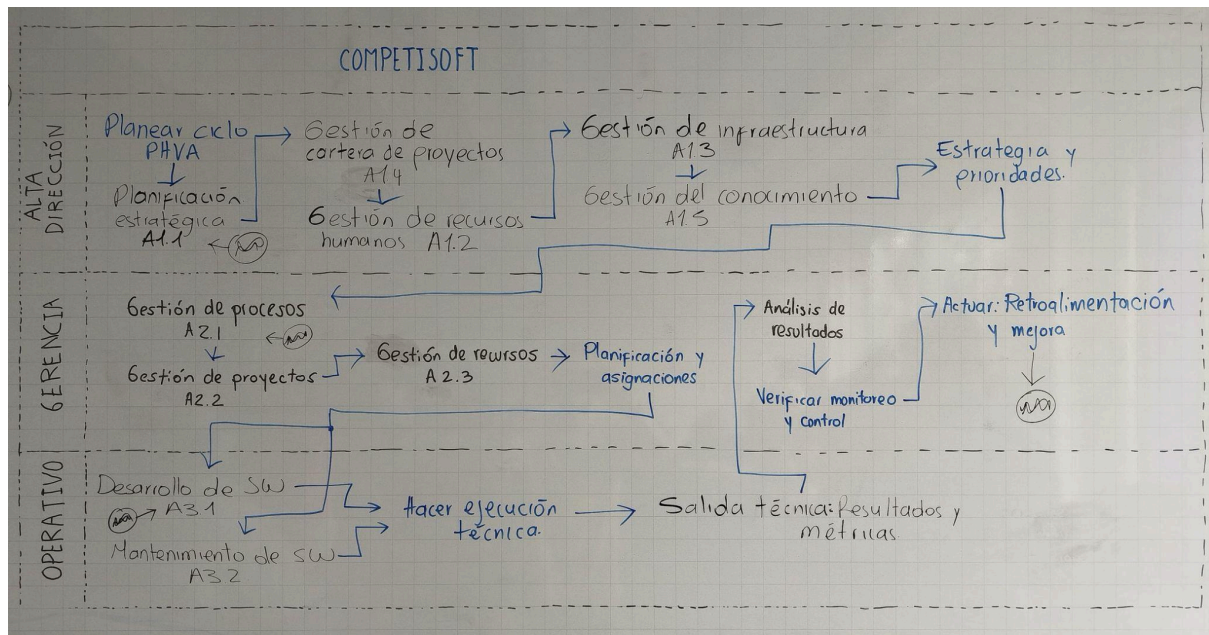 COMPETISOFT
ALTA
DIRECCIÓN
Planear ciclo
PHVA
Planificación
estratégica
A1.1
Gestión de
cartera de proyectos
A1.4
Gestión de recursos
humanos A1.2
Gestión de infraestructura
A1.3
Gestión del conocimiento
A1.5
Estrategia y
prioridades.
GERENCIA
Gestión de procesos
A2.1
Gestión de proyectos
A2.2
Gestión de recursos
A2.3
Planificación y
asignaciones
Análisis de
resultados
Verificar monitoreo
y control
Actuar: Retroalimentación
y mejora
OPERATIVO
Desarrollo de SW
A3.1
Mantenimiento de SW
A3.2
Hacer ejecución
técnica.
Salida técnica: Resultados y
métricas.